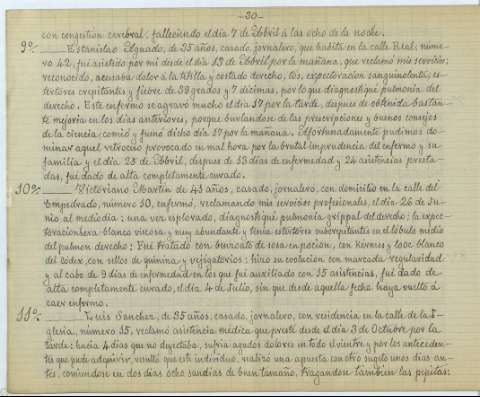 -30-
con congestion cerebral, falleciendo el dia 7 de Abril á las ocho de la noche.
9º Estanislao Aguado, de 35 años, casado, jornalero, que habita en la calle Real, núme-
ro 42, fui asistido por mi desde el dia 13 de Abril por la mañana, que reclamó mis servicios;
reconocido, acusaba dolor á la tetilla y costado derecho, tos, expectoracion sanguinolenta, es-
tertores crepitantes y fiebre de 39 grados y 7 décimas, por lo que diagnostiqué pulmonia del
derecho. Este enfermo se agravó mucho el dia 17 por la tarde, despues de obtenida bastan-
te mejoria en los dias anteriores, porque burlandose de las prescripciones y buenos consejos
de la ciencia comió y fumó dicho dia 17 por la mañana. Afortunadamente pudimos do-
minar aquel retroceso provocado en mal hora por la brutal imprudencia del enfermo y su
familia y el dia 25 de Abril, despues de 13 dias de enfermedad y 24 asistencias presta-
das, fué dado de alta completamente curado.
10º Victoriano Martin de 43 años, casado, jornalero, con domicilio en la calle del
Empedrado, número 10, enfermó, reclamando mis servicios profesionales, el dia 26 de Ju-
nio al mediodia: una vez explorado, diagnostiqué pulmonia grippal del derecho; la expec-
toracion era blanca viscosa y muy abundante y tenia estertores subcrepitantes en el lóbulo medio
del pulmon derecho; Fué tratado con benzoato de sosa en pocion, con Kermes y looc blanco
del codex, con sellos de quinina y vejigatorios: hizo su evolucion con marcada regularidad
y al cabo de 9 dias de enfermedad en los que fué auxiliado con 15 asistencias, fué dado de
alta completamente curado, el dia 4 de Julio, sin que desde aquella fecha haya vuelto á
caer enfermo.
11º Luis Sanchez, de 35 años, casado, jornalero, con residencia en la calle de la I-
glesia, número 15, reclamó asistencia médica que presté desde el dia 3 de Octubre por la
tarde: hacia 4 dias que no deyectaba, sufria agudos dolores en todo el vientre y por los anteceden-
tes que pude adquirir, resultó que este individuo, realizó una apuesta con otro sugeto unos dias an-
tes, comiendose en dos dias ocho sandias de buen tamaño, tragandose tambien las pepitas: